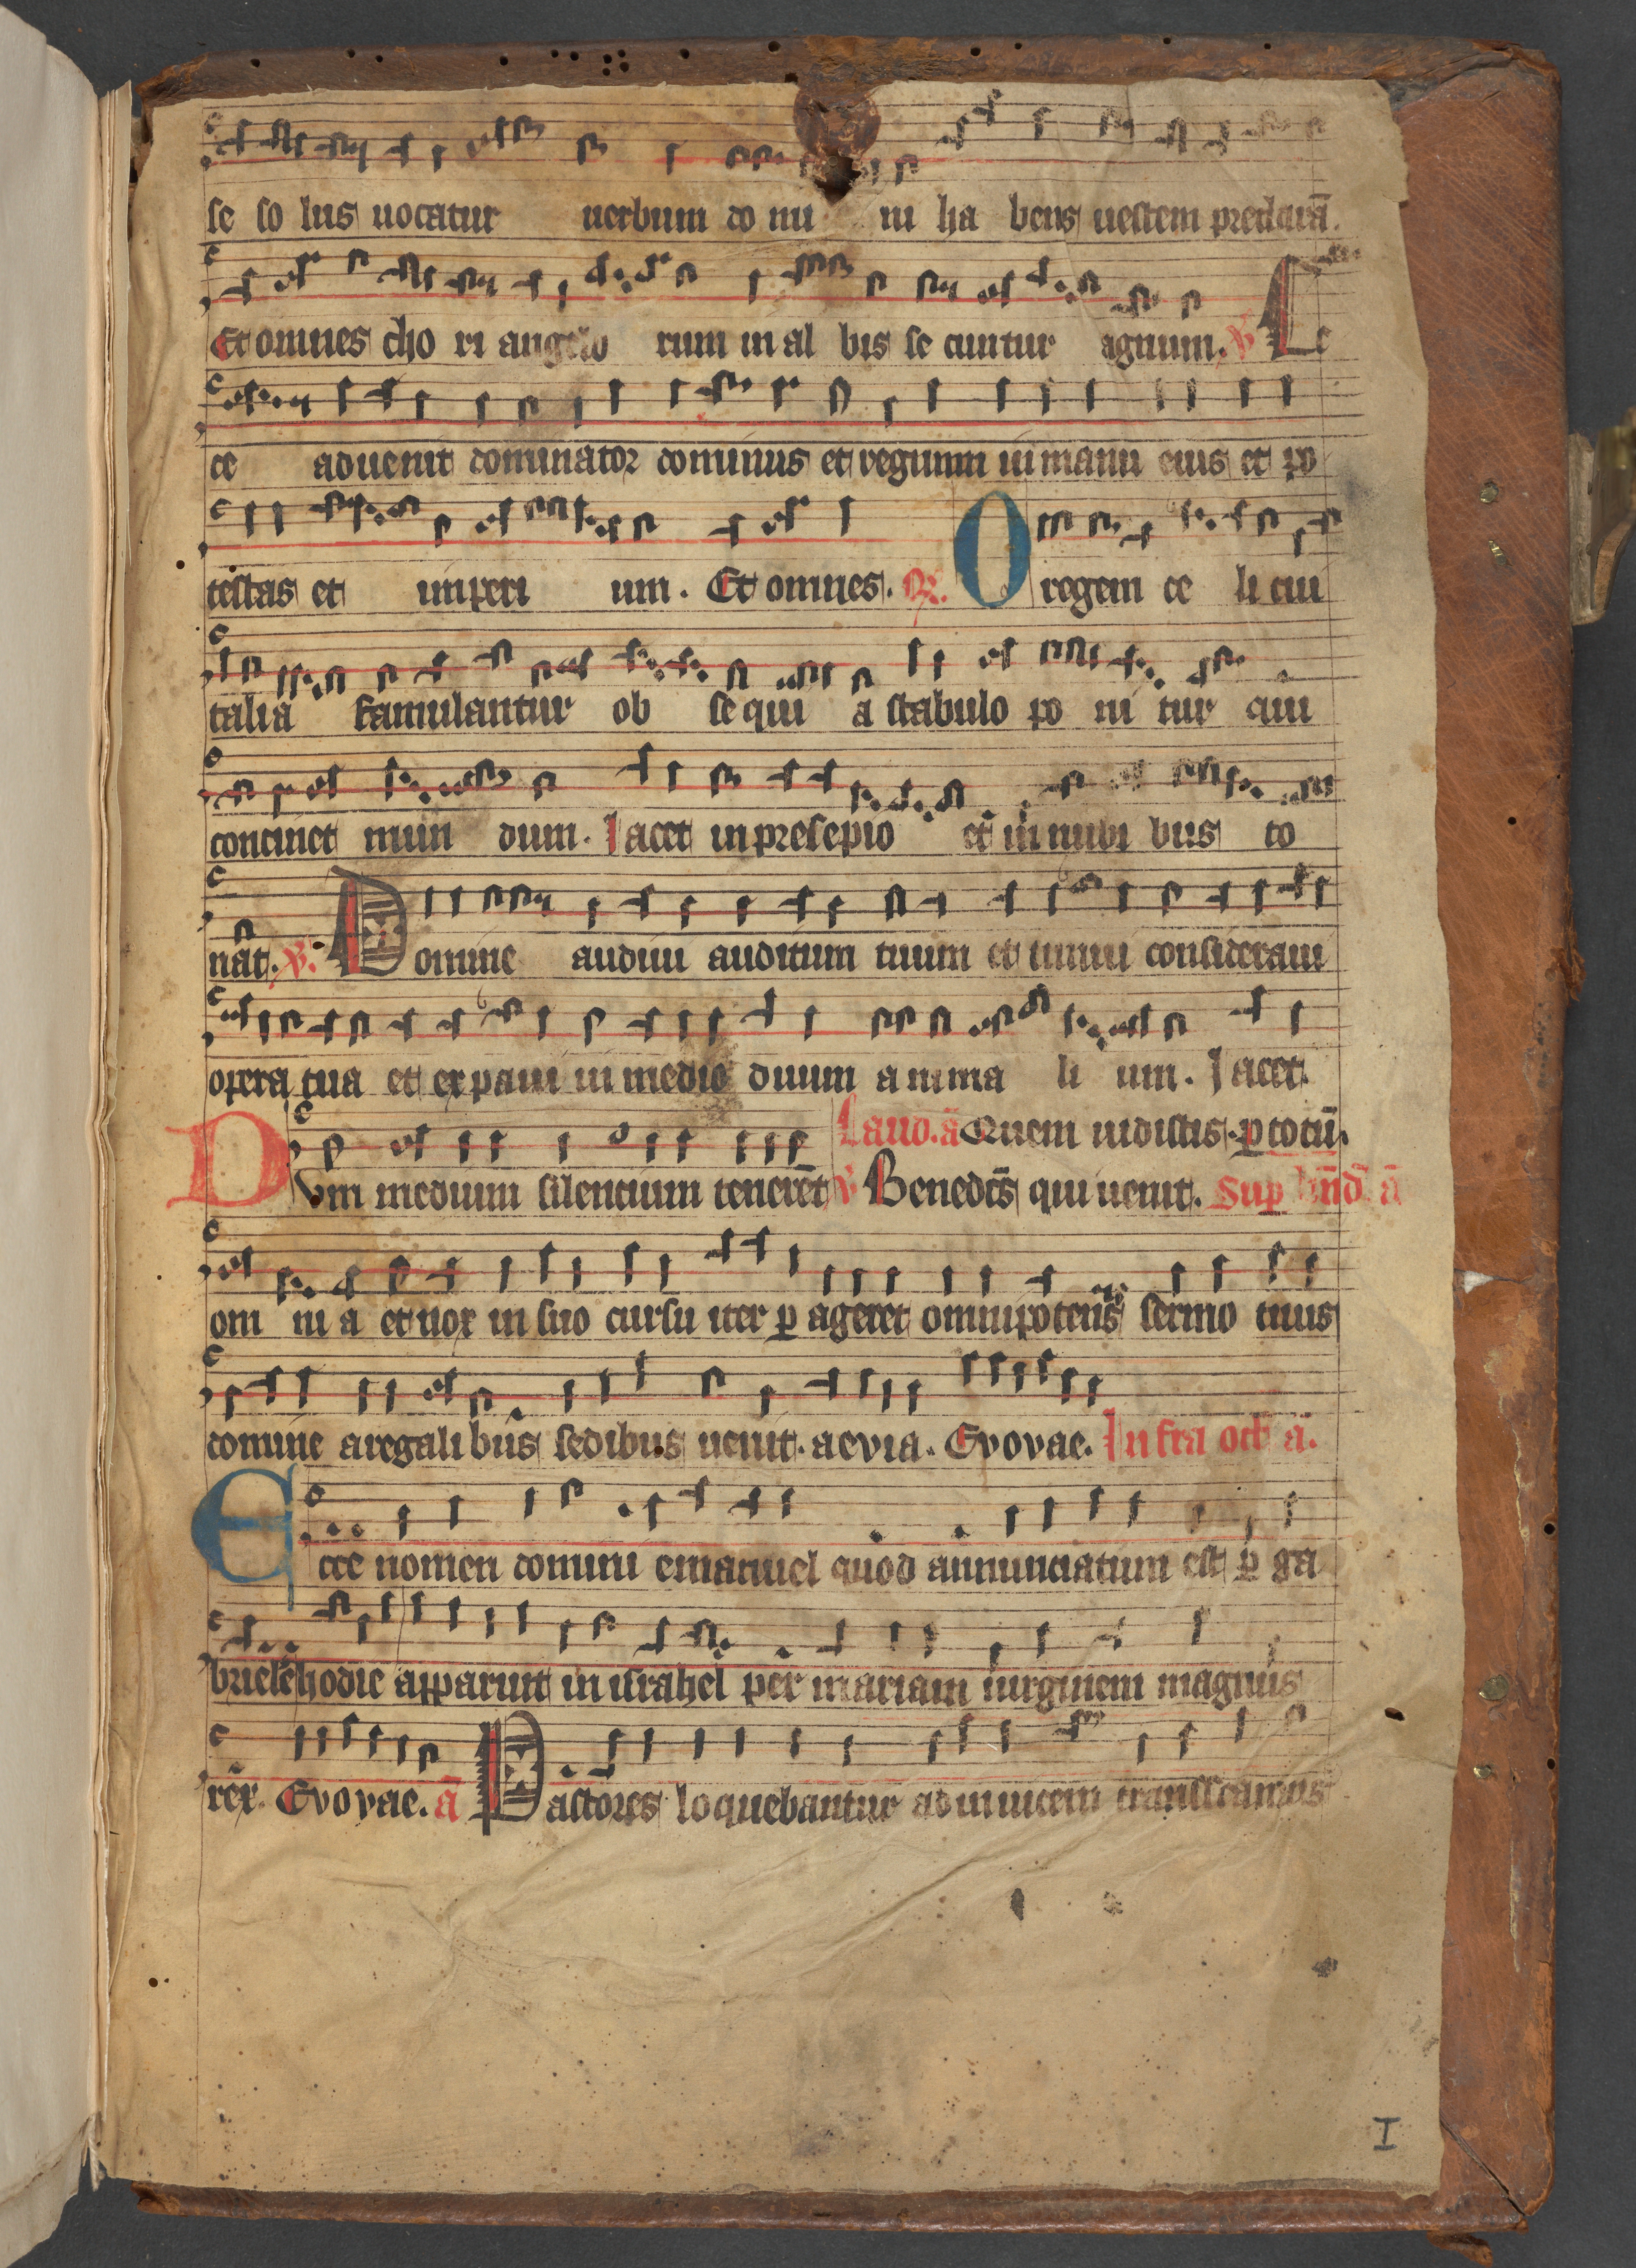 se so lus uocatur uerbum do mi ni ha bens uestem preclarā.
Et omnes cho ri angelo rum in al bis se cuntur agnum. V Ec
ce aduenit dominator dominus et regnum in manu eius et po
testas et imperi um. Et omnes. R. O regem ce li cui
talia famulantur ob se qui a stabulo po ni tur qui
continet mun dum. Iacet in presepio et in nubi bus to
nat. V. Domine audiui auditum tuum et timui consideraui
opera tua et expaui in medio duum anima li um. Iacet.
Laud. ā Quem uidistis. p totū.
Dum medium silencium tenerēt V Benedcs qui uenit. Sup bn̄d ā
om ni a et nox in suo cursu iter p ageret omnipotens sermo tuus
domine a regali bus sedibus uenit. aevia. Evovae. Infra oct ā.
Ecce nomen domini emanuel quod annunciatum est p ga
brielē hodie apparuit in israhel per mariam uirginem magnus
rex. Evovae. ā Pastores loquebantur adinuicem transeamus
I